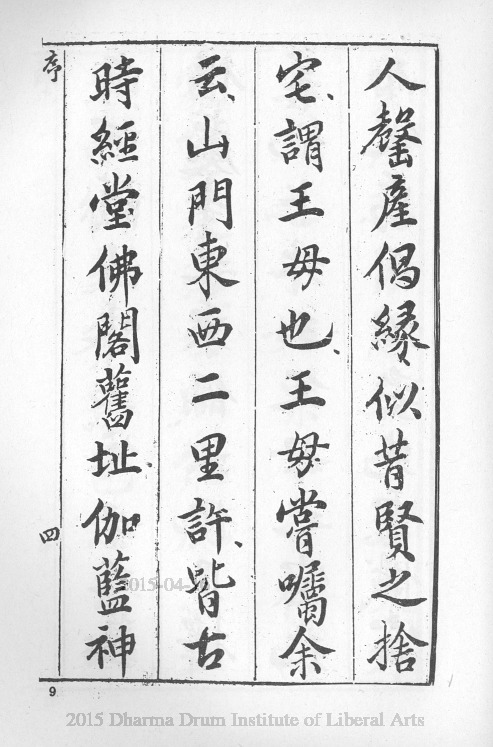 人罄產偈緣似昔賢之捨
宅、謂王毋也、王毋嘗囑余
云、山門東西二里許、皆古
時經堂佛閣舊址、伽藍神
序
四
9
2015-04-
2015 Dharma Drum Institute of Liberal Arts